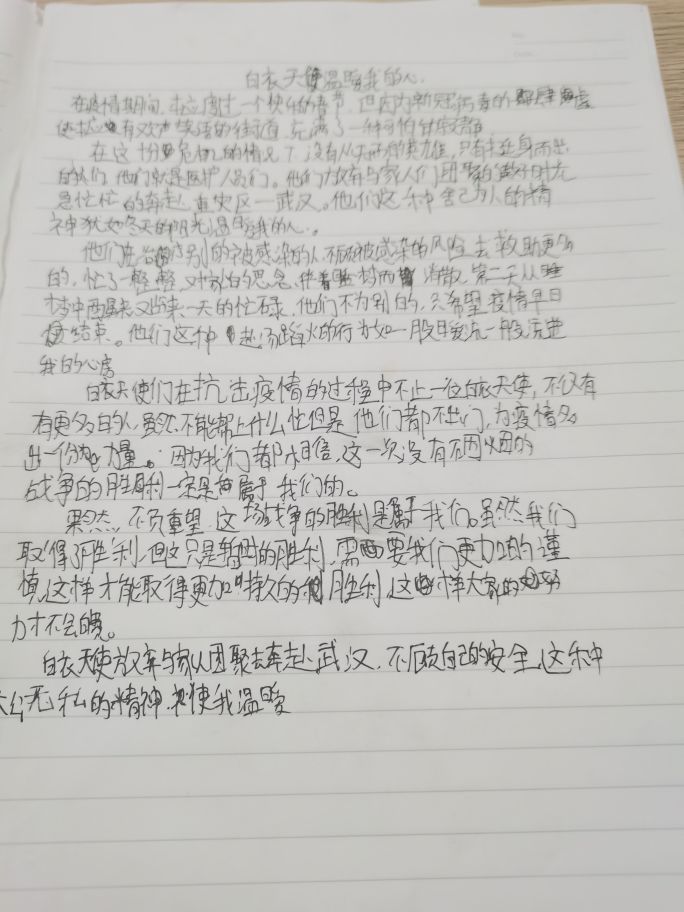 白衣天使温暖我的人.
在疫情期间,本应度过一个快乐的春节,但因为新冠病毒的肆虐
使 有欢声笑语的街道,充满了一种可怕 寂静.
在这十分危机的情况下,没有从天而 英雄,只有挺身而出
的人们,他们就是医护人员们。他们放弃与家人们团聚的美好时光
急忙忙的奔赴 重灾区—武汉。他们这种舍己为人的精
神犹如冬天的阳光温暖我的人.。
他们在治 别的被感染的人,不顾被感染的风险去救助更多
的,忙了一整 ,对家的思念,伴着 梦而 消散,第二天从睡
梦中 来,又 一天的忙碌,他们不为别的,只希望疫情早日
结束。他们这种 赴汤蹈火的行为如一股暖流一般 进
我的心房
白衣天使们在抗击疫情的过程中不止一位白衣天使,不仅有
有更多的人,虽然不能帮上什么忙但是他们都不出门,为疫情多
出一份 力量。因为我们都相信,这一次没有硝烟的
战争的胜利一定是 属于我们的。
果然,不负重望,这场战争的胜利是属于我们。虽然我们
取得了胜利,但这只是暂时的胜利,需 要我们更加的谨
慎,这样才能取得更加 持久的 胜利,这 样大家的 努
力才不会白 。
白衣天使放弃与家人团聚去奔赴武汉,不顾自己的安全,这种
大公无私的精神, 使我温暖